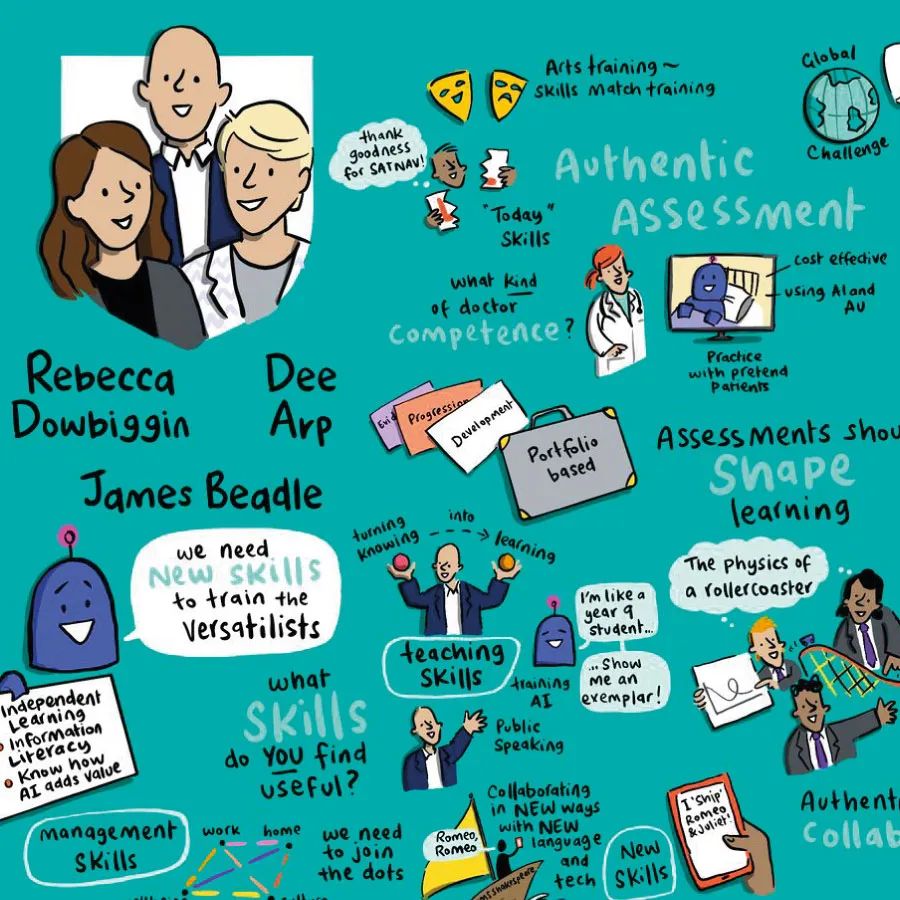 Rebecca
Dowbiggin
Dee
Arp
James Beadle
we need
NEW SKILLS
to train the
VERSATILISTS
Independent
Learning
Information
Literacy
Know how
AI adds value
what
SKILLS
do YOU find
useful?
management
SKills
work
home
we need
to join
the dots
Arts training ~
skills match training
thank
goodness
for SATNAV!
"Today"
Skills
what kind
of doctor
competence?
Global
Challenge
Authentic
Assessment
cost effective
using AI and
AU
Practice
with pretend
patients
Progression
Development
Portfolio
based
Assessments
Shape
learning
turning
knowing
into
learning
teaching
SKills
I'm like a
year 9
student...
...Show
me an
exemplar!
training
AI
Public
Speaking
The physics of
a rollercoaster
Collaborating
in NEW ways
with NEW
language
and
tech
Romeo,
Romeo
New
Skills
I 'Ship'
Romeo
& Juliet!